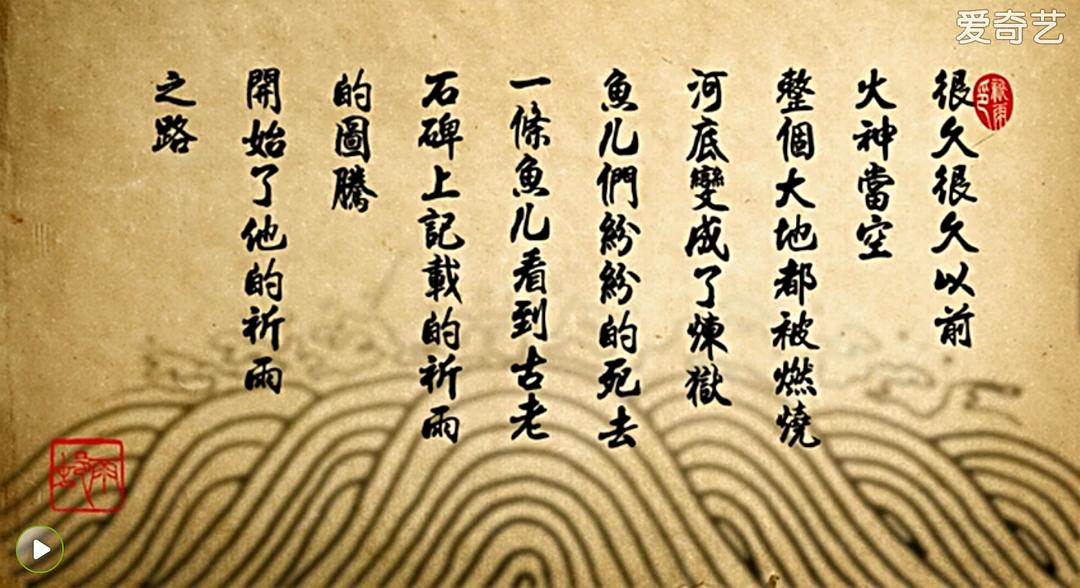 爱奇艺
很久很久以前
火神當空
整個大地都被燃燒
河底變成了煉獄
魚儿們紛紛的死去
一條魚儿看到古老
石碑上記載的祈雨
的圖騰
開始了他的祈雨
之路